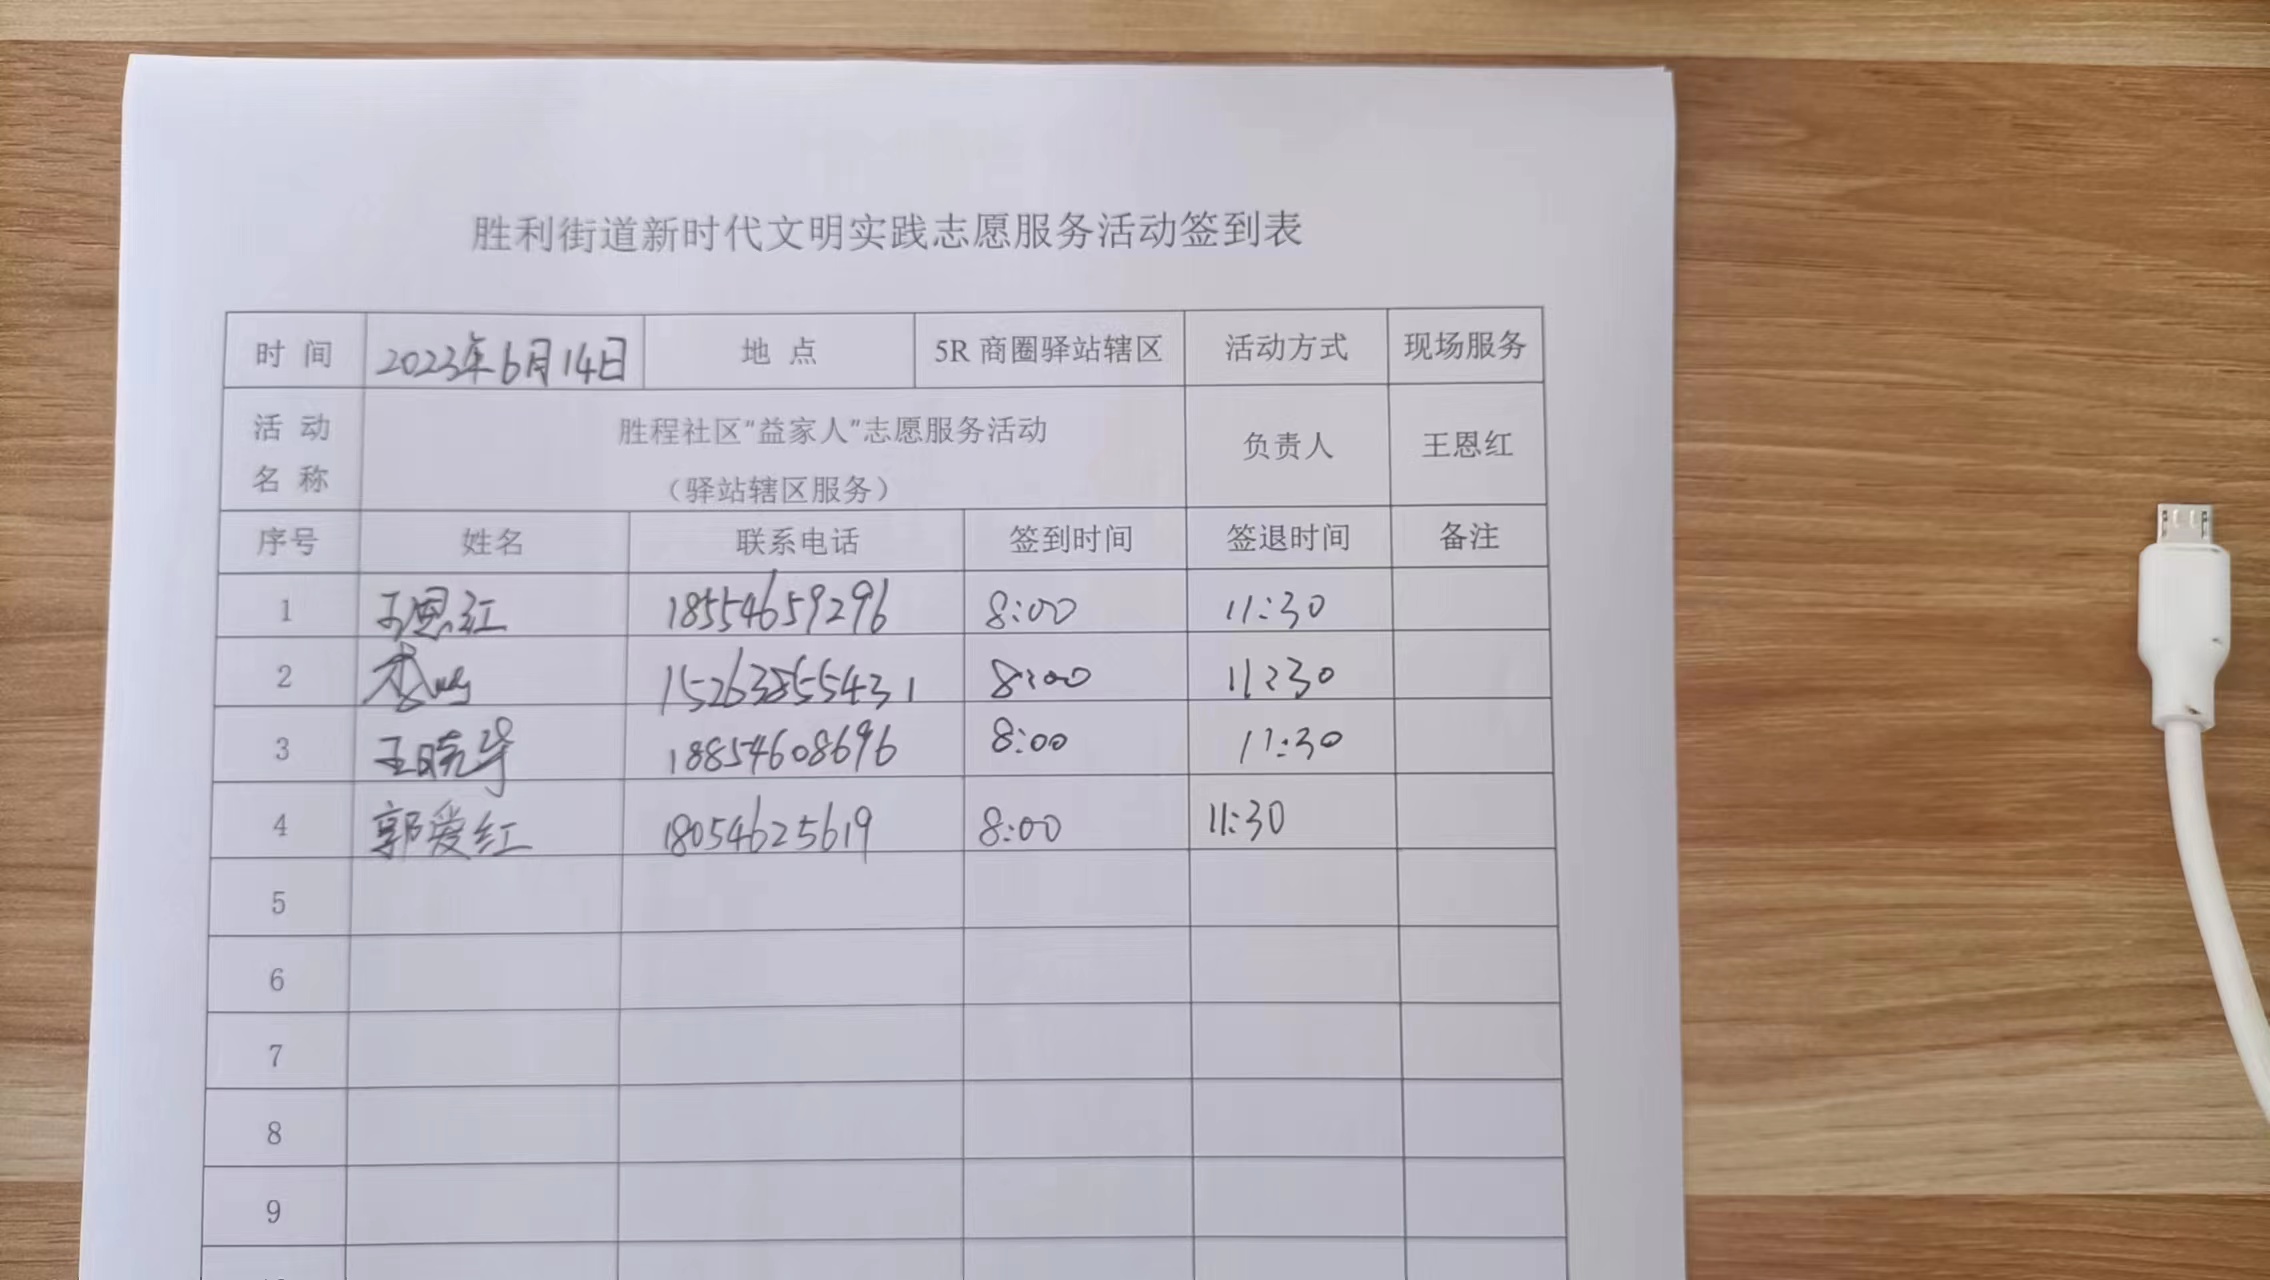 胜利街道新时代文明实践志愿服务活动签到表
时 间 2023年6月14日 地 点 5R 商圈驿站辖区 活动方式 现场服务
活 动 名 称 胜程社区“益家人”志愿服务活动 负责人 王恩红
（驿站辖区服务）
序号 姓名 联系电话 签到时间 签退时间 备注
1 王恩红 18554659296 8:00 11:30
2 8:00 11:30
3 王晓华 18854608696 8:00 11:30
4 郭爱红 18054625619 8:00 11:30
5
6
7
8
9